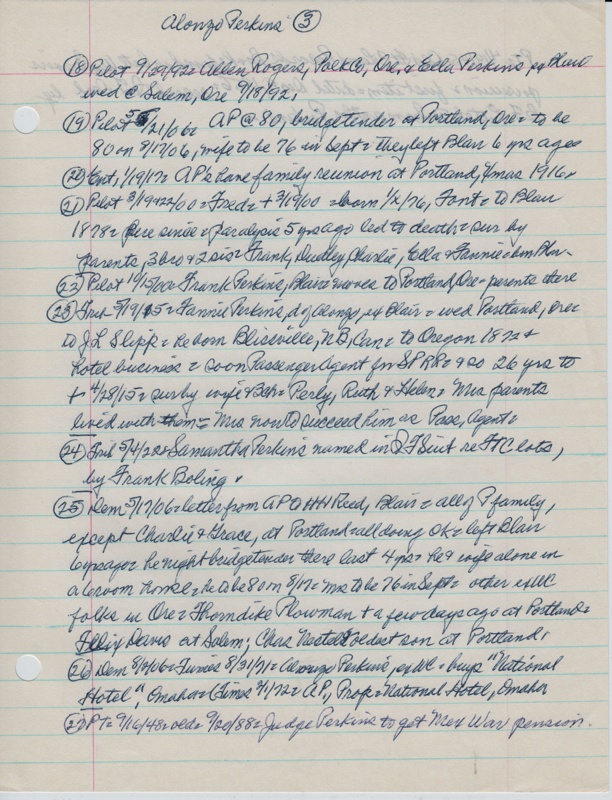 Alonzo Perkins ③
⑱ Pilot 9/29/92 = Allen Rogers, Polk Co, Ore, & Ella Perkins, ex Blair
wed @ Salem, Ore 9/18/92,
⑲ Pilot 21/06 = AP @ 80, bridgetender at Portland, Ore = to be
80 on 8/17/06, wife to be 76 in Sept = they left Blair 6 yrs ago
⑳ Ent, 1/19/17 = AP's have family reunion at Portland, Xmas 1916.
㉑ Pilot 3/19+22/00 = Fred = + 3/19/00 = born 1/2/76, Font = to Blair
1878 = here since = paralysis 5 yrs ago led to death = sur by
parents, 3 bro & 2 sis = Frank, Dudley, Charlie, Ella & Fannie =
㉒ Pilot 10/15/00 = Frank Perkins, Blair = moves to Portland Ore = parents there
㉓ Trib 5/9/15 = Fannie Perkins, d of Alonzo, ex Blair = wed Portland, Ore
to J L Slipp = he born Blissville, NB, Can = to Oregon 1872 +
hotel business = soon Passenger Agent for SPRR = & so 26 yrs to
+ 4/28/15 = sur by wife & = Perly, Ruth & Helen = Mrs parents
lived with them = Mrs now to succeed him as Pass, Agent =
㉔ Trib 5/4/22 = Samantha Perkins named in QT Suit re FTC lots,
by Frank Boling.
㉕ Dem 5/17/06 = letter from AP to HH Reed, Blair = all of P family,
except Charlie & Grace, at Portland = all doing OK = left Blair
6 yrs ago = he night bridgetender there last 4 yrs = he & wife alone in
a 6 room house = he to be 80 on 8/17 = Mrs to be 76 in Sept = other exWC
folks in Ore = Thorndike Plowman + a few days ago at Portland =
Felix Davis at Salem; Chas oldest son at Portland,
㉖ Dem = Times 8/31/71 = Alonzo Perkins, exWC = buys "National
Hotel", Omaha = (Times 9/1/72 = AP, Prop = National Hotel, Omaha
㉗ PT = 9/16/48 = 9/20/88 = Judge Perkins to get Mex War pension.